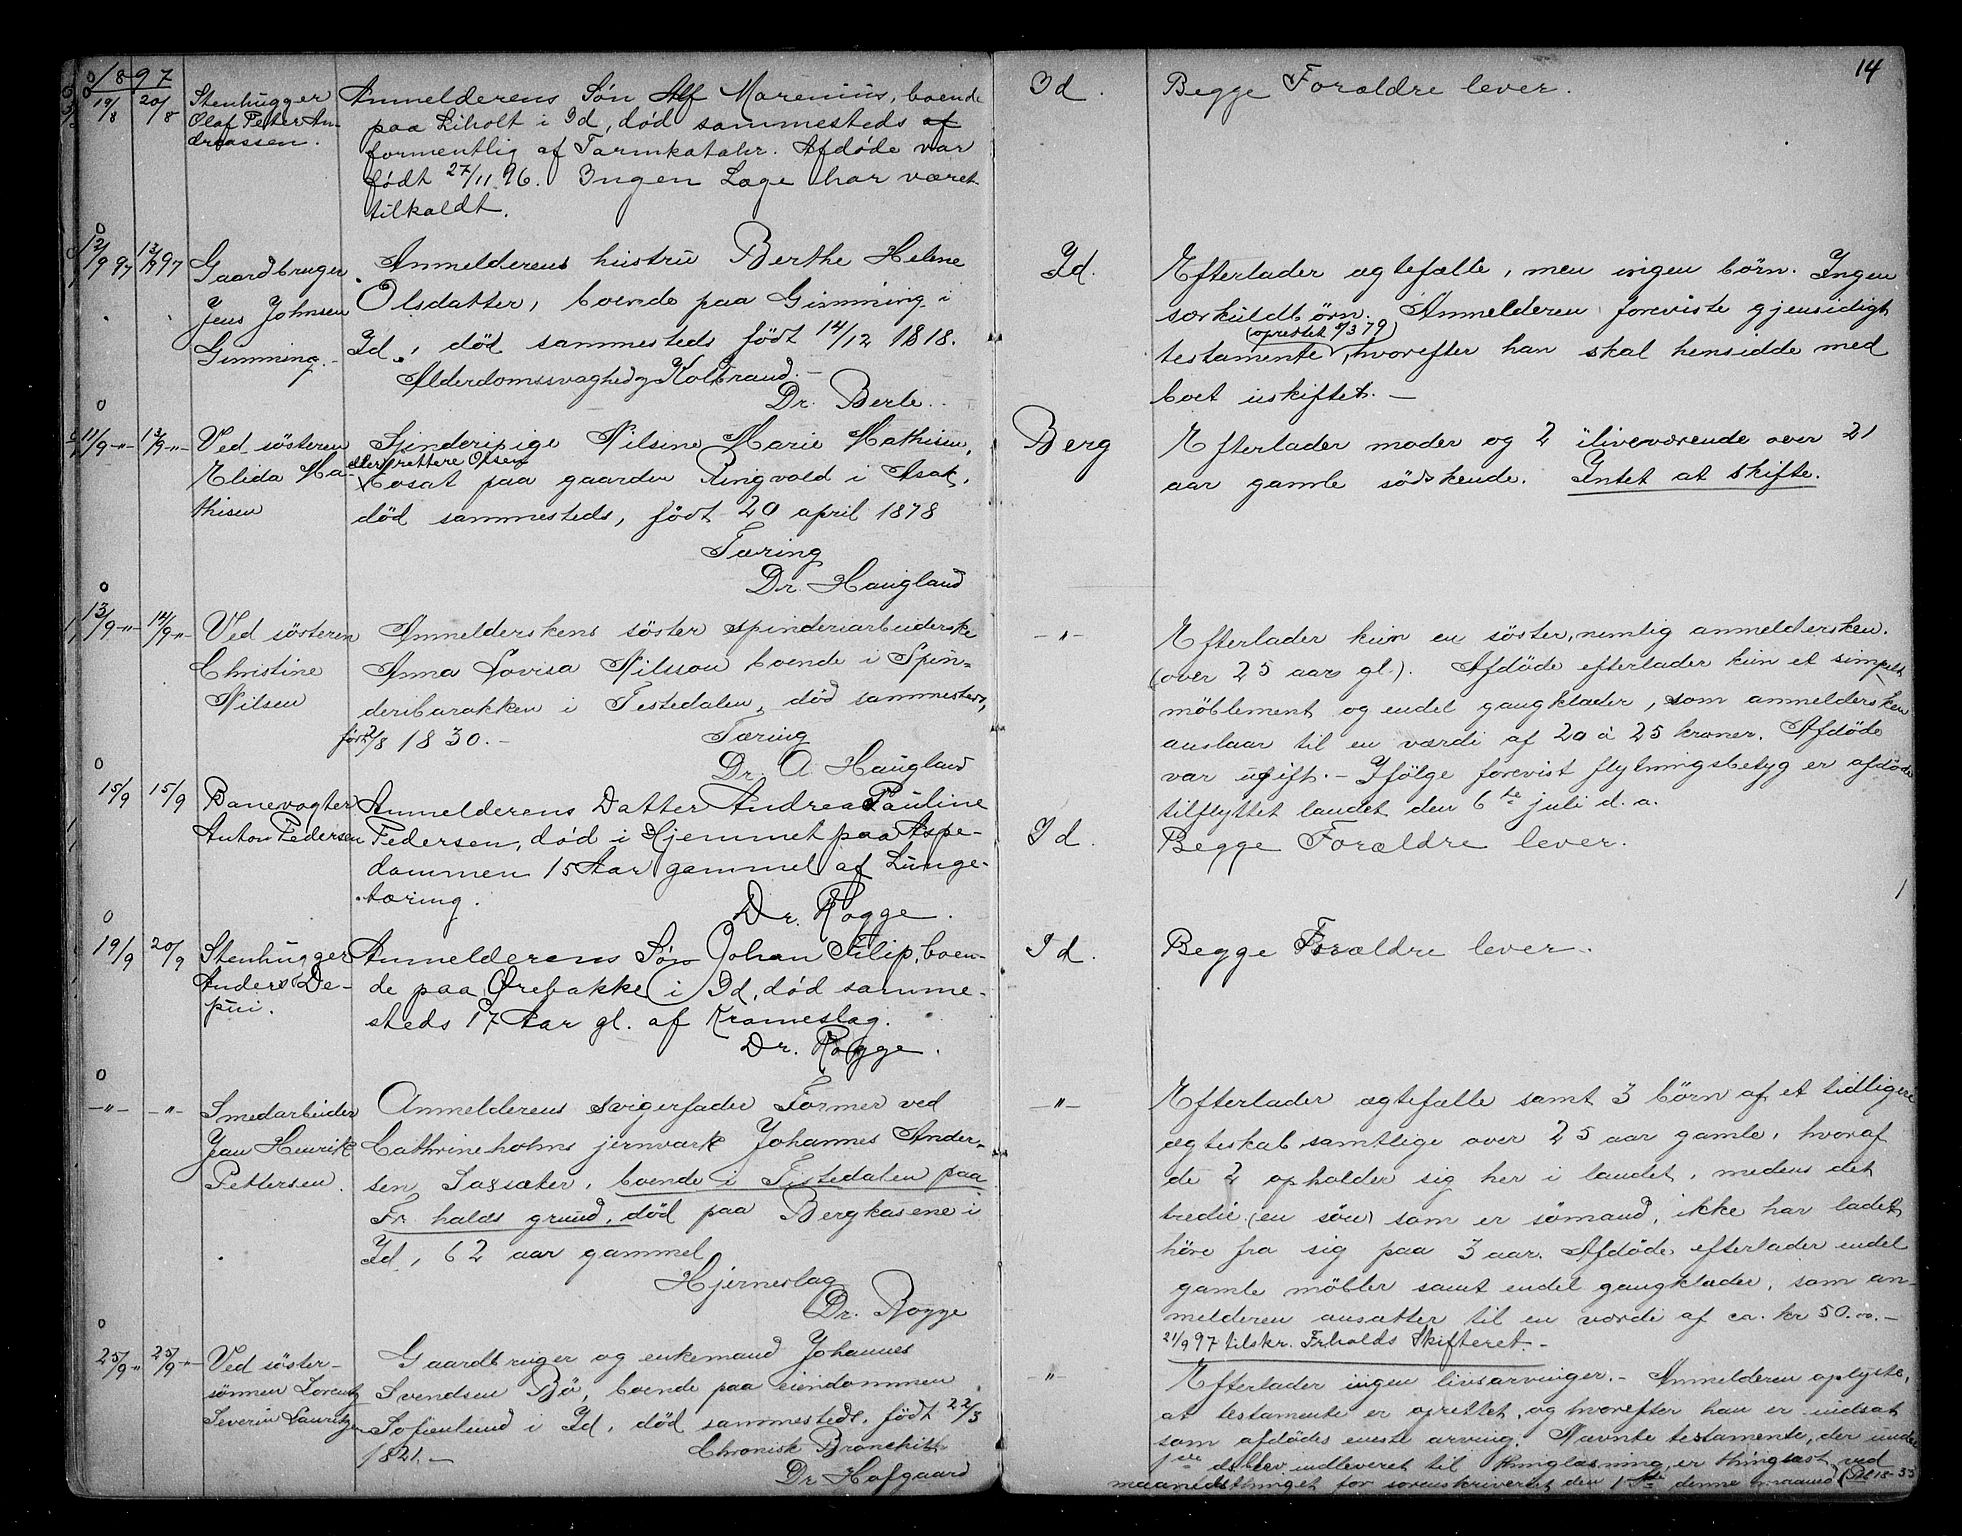 14
1897
19/8 20/8 Stenhugger Olaf Peter Andreassen.
Anmelderens Søn Alf Marenius, boende
paa Liholt i Id, død sammesteds af
formentlig af Tarmkatahr. Afdøde var
født 27/11 96. Ingen Læge har været
tilkaldt.
Id.
Begge Forældre lever.
12/9 97 13/9 97 Gaardbruger
Jens Johnsen
Gimming.
Anmelderens hustru Berthe Helene
Olsdatter, boende paa Gimming i
Id, død sammesteds født 14/12 1818.
Alderdomssvaghed og Koldbrand.
Dr. Berle.
Id.
Efterlader ægtefælle, men ingen børn. Ingen
særkuldbørn. Anmelderen foreviste gjensidigt
(oprettet 379)
testamente, hvorefter han skal hensidde med
boet uskiftet. —
11/9 -"- 13/9 -"- Ved søsteren
Elida Ma-
thisen
Spinderipige Nilsine Marie Mathisen,
eller rettere Olsen
bosat paa gaarden Ringvold i Asak,
død sammesteds, født 20 april 1878
Tæring
Dr. Haugland
Berg
Efterlader moder og 2 ilivværende over 21
aar gamle sødskende. Intet at skifte.
13/9 -"- 14/9 -"- Ved søsteren
Christine
Nilsen
Anmelderskens søster spinderiarbeiderske
Anna Lovisa Nilsson boende i Spin-
deribarakken i Tistedalen, død sammesteds,
født 2/8 1830. –
Tæring
Dr. A Haugland
-"-
Efterlader kun en søster, nemlig anmeldersken.
(over 25 aar gl.). Afdøde efterlader kun et simpelt
møblement og endel gangklæder, som anmeldersken
anslaar til en værdi af 20 à 25 kroner. Afdøde
var ugift. – Ifølge forevist flytningsbetyg er afdøde
tilflyttet landet den 6te juli d. a.
15/9 15/9 Banevogter
Anton Pedersen
Anmelderens Datter Andrea Pauline
Pedersen, død i Hjemmet paa Aspe-
dammen 15 Aar gammel af Lunge-
tæring.
Dr. Rogge.
Id.
Begge Forældre lever.
19/9 20/9 Stenhugger
Anders De-
pui.
Anmelderens Søn Johan Filip, boen-
de paa Ørebakke i Id, død samme-
steds 17 Aar gl. af Krameslag.
Dr. Rogge.
Id.
Begge Forældre lever.
-"- -"- Smedarbeider
Jan Henrik
Pettersen.
Anmelderens svigerfader Former ved
Cathrineholms jernværk Johannes Ander-
sen Saxsæter, boende i Tistedalen paa
Fr halds grund, død paa Bergkasene i
Id, 62 aar gammel
Hjerneslag
Dr. Rogge
-"-
Efterlader ægtefælle samt 3 børn af et tidligere
ægteskab samtlige over 25 aar gamle, hvoraf
de 2 opholder sig her i landet, medens det
tredie (en søn) som er sømand, ikke har ladet
høre fra sig paa 3 aar. Afdøde efterlader endel
gamle møbler samt endel gangklæder, som an-
melderen ansætter til en værdi af ca. kr 50.00. –
21/9 97 tilskr. Frhalds Skifteret. –
25/9 -"- 25/9 -"- Ved søster-
sønnen Lorentz
Severin Lauritzen
Gaardbruger og enkemand Johannes
Svendsen Bø, boende paa eiendommen
Sofienlund i Id, død sammesteds, født 22/3
1821. —
Chronisk Bronchit
Dr Hofgaard
"
Efterlader ingen livsarvinger. – Anmelderen oplyste,
at testamente er oprettet, og hvorefter han er indsat
som afdødes eneste arving. Nævnte testamente, der
blev indleveret til thinglæsning, er thinglæst ved
maanedsthinget for sorenskriveriet den 1ste denne maaned